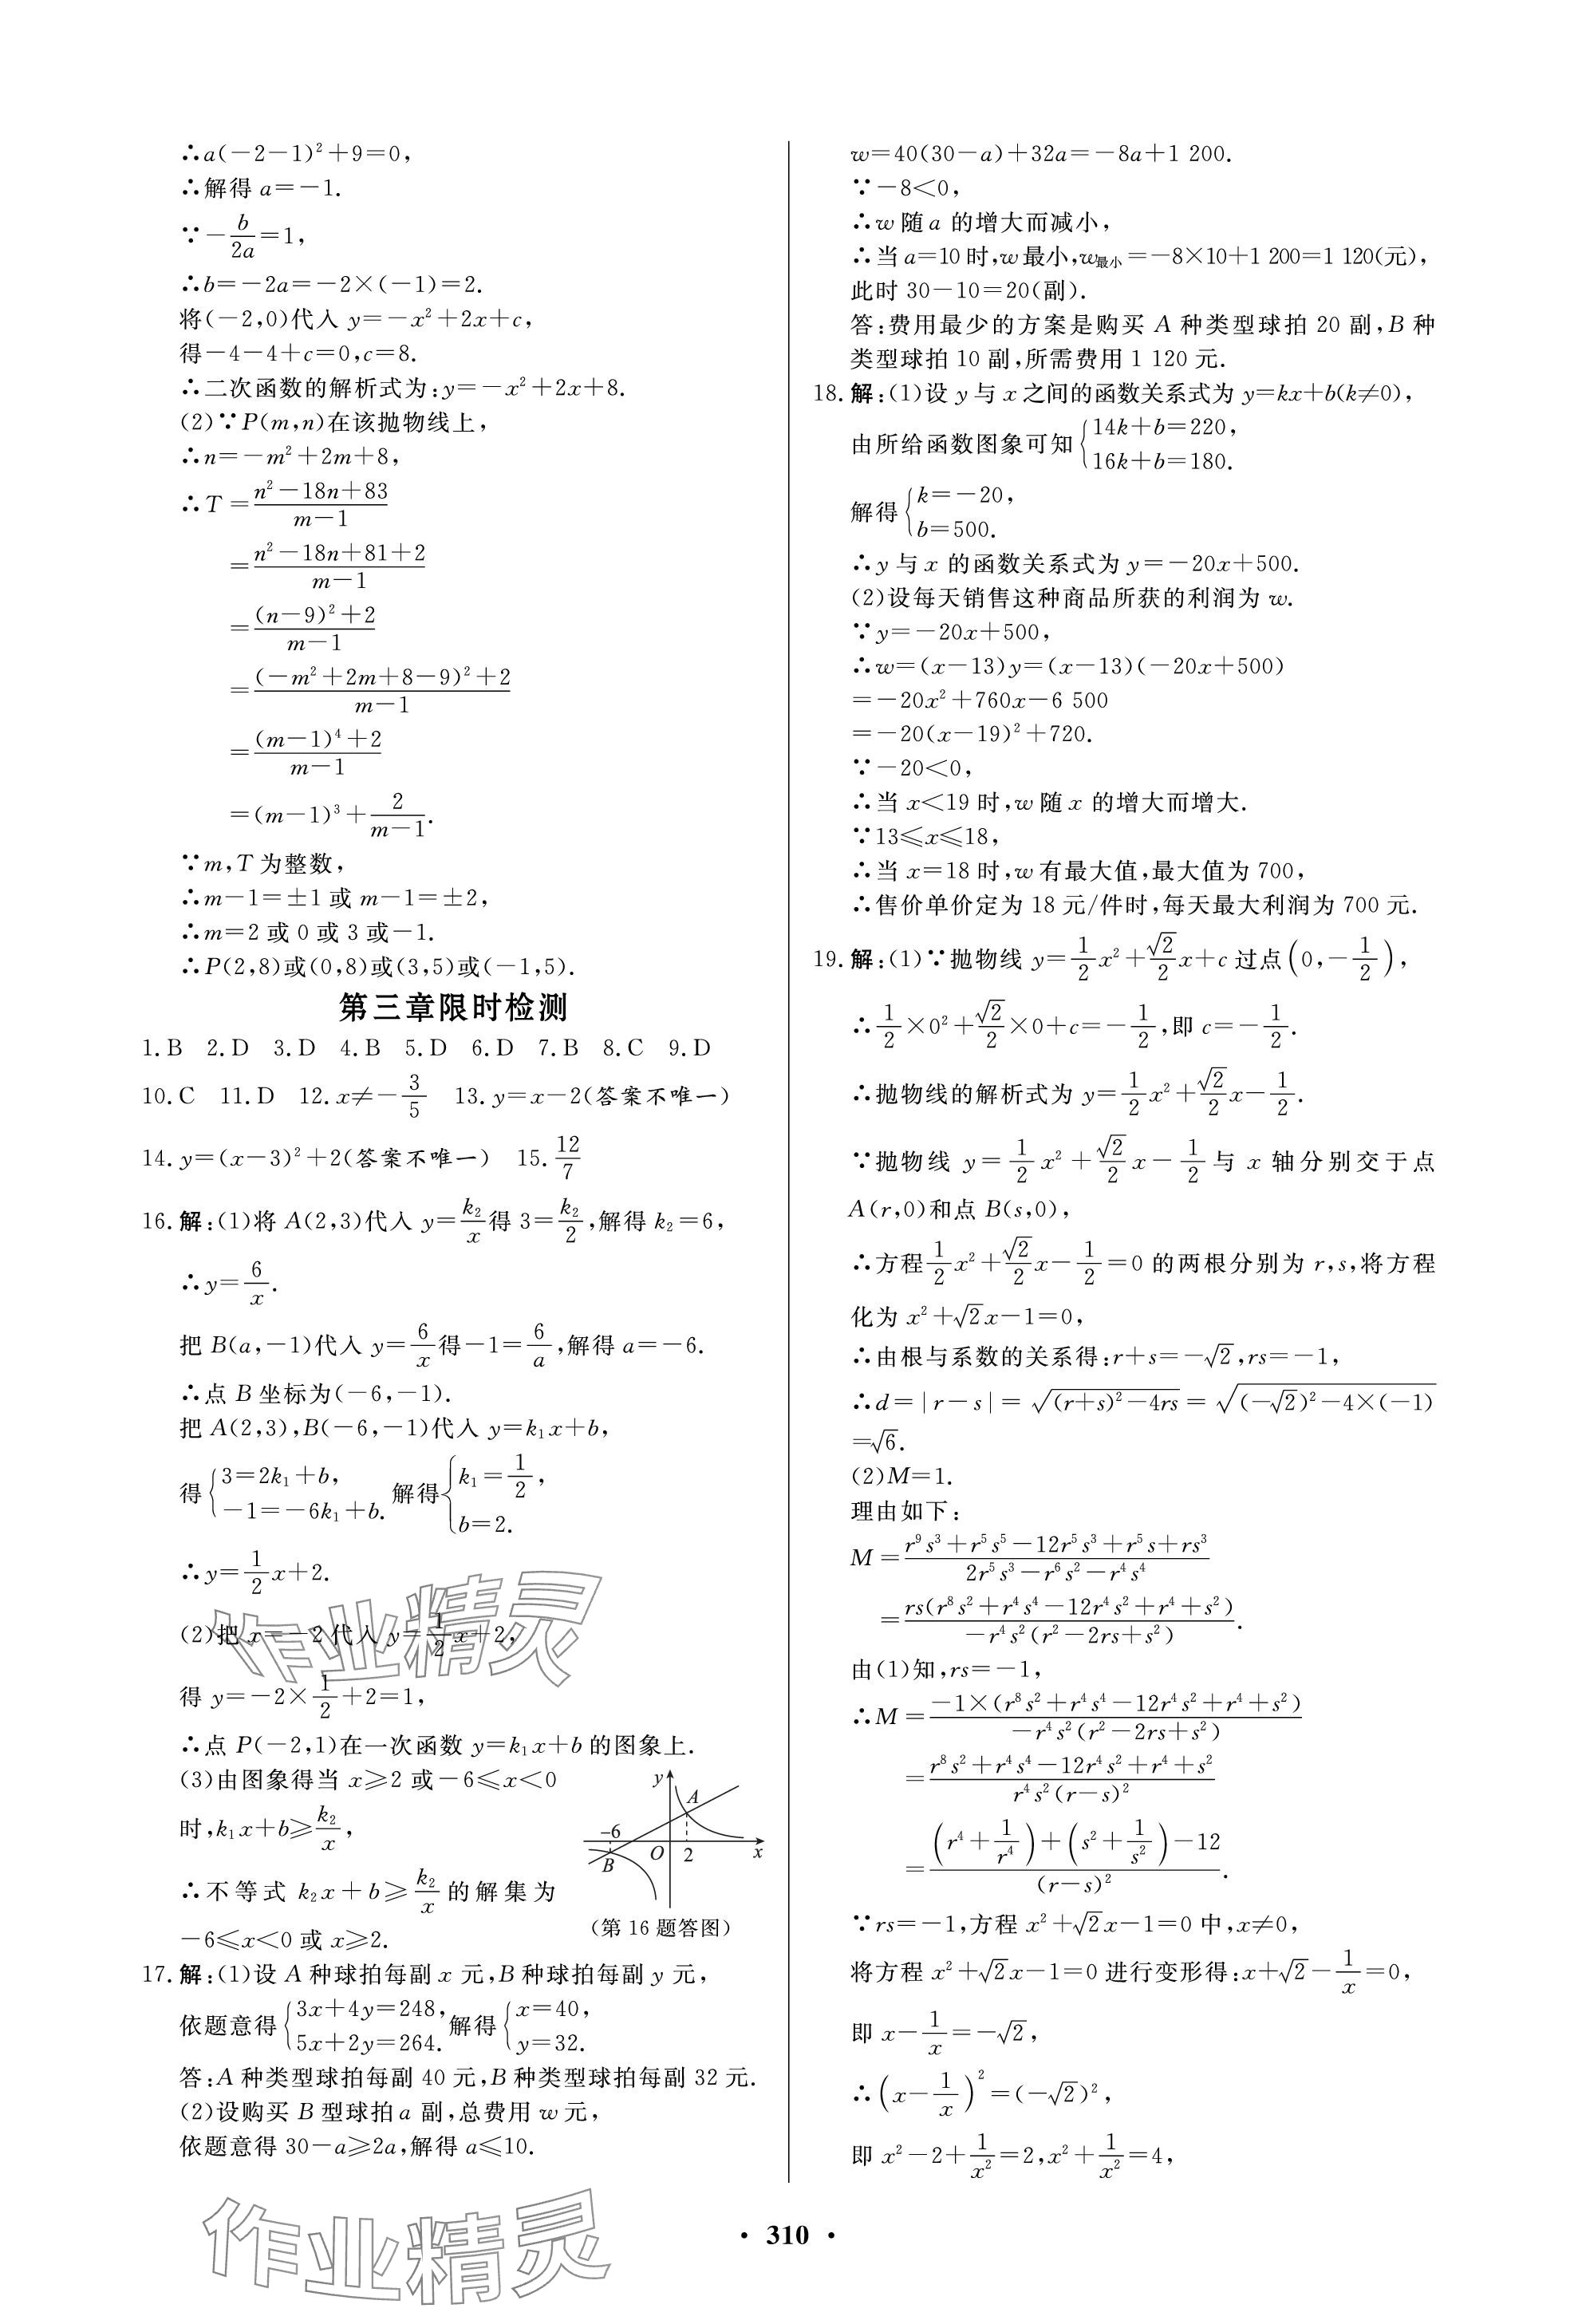 ∴a(－2－1)²＋9＝0，
∴解得 a＝－1.
∵－b/2a＝1，
∴b＝－2a＝－2×(－1)＝2.
将(－2,0)代入 y＝－x²＋2x＋c，
得－4－4＋c＝0,c＝8.
∴二次函数的解析式为:y＝－x²＋2x＋8.
(2)∵P(m,n)在该抛物线上，
∴n＝－m²＋2m＋8，
∴T＝(n²－18n＋83)/(m－1)
＝(n²－18n＋81＋2)/(m－1)
＝((n－9)²＋2)/(m－1)
＝((－m²＋2m＋8－9)²＋2)/(m－1)
＝((m－1)⁴＋2)/(m－1)
＝(m－1)³＋2/(m－1).
∵m,T 为整数，
∴m－1＝±1 或 m－1＝±2，
∴m＝2 或 0 或 3 或－1.
∴P(2,8)或(0,8)或(3,5)或(－1,5).
第三章限时检测
1.B 2.D 3.D 4.B 5.D 6.D 7.B 8.C 9.D
10.C 11.D 12.x≠－3/5 13.y＝x－2(答案不唯一)
14.y＝(x－3)²＋2(答案不唯一) 15.12/7
16.解:(1)将 A(2,3)代入 y＝k₂/x得 3＝k₂/2,解得 k₂＝6，
∴y＝6/x.
把 B(a,－1)代入 y＝6/x得－1＝6/a,解得 a＝－6.
∴点 B 坐标为(－6,－1).
把 A(2,3),B(－6,－1)代入 y＝k₁x＋b，
得{3＝2k₁＋b, －1＝－6k₁＋b. 解得{k₁＝1/2, b＝2.
∴y＝1/2x＋2.
(2)把 x＝－2 代入 y＝1/2x＋2，
得 y＝－2×1/2＋2＝1，
∴点 P(－2,1)在一次函数 y＝k₁x＋b 的图象上.
(3)由图象得当 x≥2 或－6≤x＜0
时,k₁x＋b≥k₂/x，
∴不等式 k₂x＋b≥k₂/x的解集为
－6≤x＜0 或 x≥2.
y
A
－6
B
O
2
x
(第 16 题答图)
17.解:(1)设 A 种球拍每副 x 元,B 种球拍每副 y 元，
依题意得{3x＋4y＝248, 5x＋2y＝264. 解得{x＝40, y＝32.
答:A 种类型球拍每副 40 元,B 种类型球拍每副 32 元.
(2)设购买 B 型球拍 a 副,总费用 w 元，
依题意得 30－a≥2a,解得 a≤10.
w＝40(30－a)＋32a＝－8a＋1 200.
∵－8＜0，
∴w 随 a 的增大而减小，
∴当 a＝10 时,w 最小,w最小＝－8×10＋1 200＝1 120(元)，
此时 30－10＝20(副).
答:费用最少的方案是购买 A 种类型球拍 20 副,B 种
类型球拍 10 副,所需费用 1 120 元.
18.解:(1)设 y 与 x 之间的函数关系式为 y＝kx＋b(k≠0)，
由所给函数图象可知{14k＋b＝220, 16k＋b＝180.
解得{k＝－20, b＝500.
∴y 与 x 的函数关系式为 y＝－20x＋500.
(2)设每天销售这种商品所获的利润为 w.
∵y＝－20x＋500，
∴w＝(x－13)y＝(x－13)(－20x＋500)
＝－20x²＋760x－6 500
＝－20(x－19)²＋720.
∵－20＜0，
∴当 x＜19 时,w 随 x 的增大而增大.
∵13≤x≤18，
∴当 x＝18 时,w 有最大值,最大值为 700，
∴售价单价定为 18 元/件时,每天最大利润为 700 元.
19.解:(1)∵抛物线 y＝1/2x²＋√2/2x＋c 过点(0,－1/2)，
∴1/2×0²＋√2/2×0＋c＝－1/2,即 c＝－1/2.
∴抛物线的解析式为 y＝1/2x²＋√2/2x－1/2.
∵抛物线 y＝1/2x²＋√2/2x－1/2与 x 轴分别交于点
A(r,0)和点 B(s,0)，
∴方程1/2x²＋√2/2x－1/2＝0 的两根分别为 r,s,将方程
化为 x²＋√2x－1＝0，
∴由根与系数的关系得:r＋s＝－√2,rs＝－1，
∴d＝|r－s|＝√((r＋s)²－4rs)＝√((－√2)²－4×(－1))
＝√6.
(2)M＝1.
理由如下:
M＝(r⁹s³＋r⁵s⁵－12r⁵s³＋r⁵s＋rs³)/(2r⁵s³－r⁶s²－r⁴s⁴)
＝rs(r⁸s²＋r⁴s⁴－12r⁴s²＋r⁴＋s²)/(－r⁴s²(r²－2rs＋s²)).
由(1)知,rs＝－1，
∴M＝－1×(r⁸s²＋r⁴s⁴－12r⁴s²＋r⁴＋s²)/(－r⁴s²(r²－2rs＋s²))
＝(r⁸s²＋r⁴s⁴－12r⁴s²＋r⁴＋s²)/(r⁴s²(r－s)²)
＝((r⁴＋1/r⁴)＋(s²＋1/s²)－12)/(r－s)².
∵rs＝－1,方程 x²＋√2x－1＝0 中,x≠0，
将方程 x²＋√2x－1＝0 进行变形得:x＋√2－1/x＝0，
即 x－1/x＝－√2，
∴(x－1/x)²＝(－√2)²，
即 x²－2＋1/x²＝2,x²＋1/x²＝4，
· 310 ·
作业精灵
作业精灵